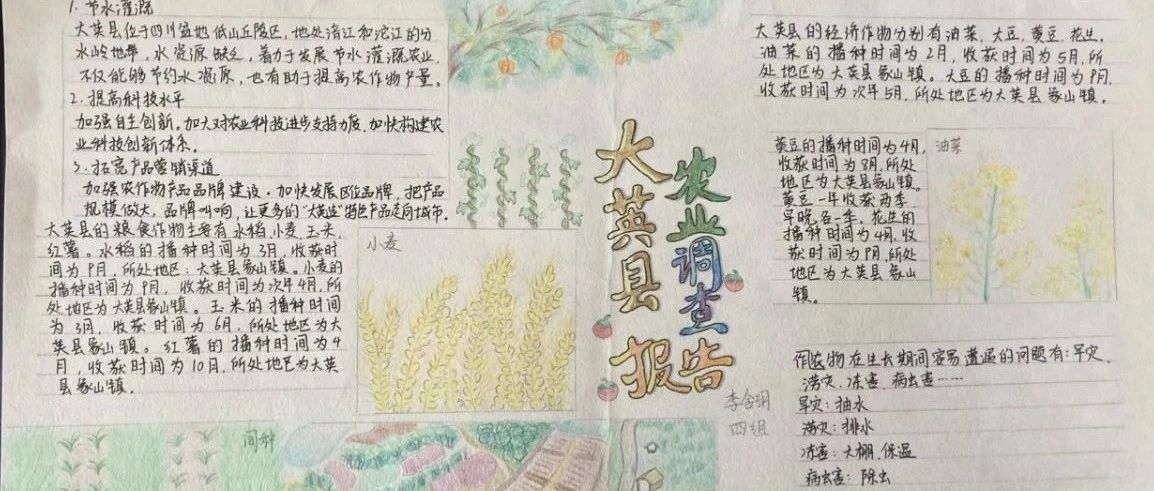 1. 节水灌溉
大英县位于四川盆地低山丘陵区,地处涪江和沱江的分
水岭地带,水资源缺乏,着力于发展节水灌溉农业,
不仅能够节约水资源,也有助于提高农作物产量。
2. 提高科技水平
加强自主创新。加大对农业科技进步支持力度,加快构建农
业科技创新体系。
3. 拓宽产品营销渠道
加强农作物产品品牌建设。加快发展区位品牌,把产品
规模做大,品牌叫响,让更多的“大英造”特色产品走向城市。
大英县的粮食作物主要有水稻,小麦,玉米,
红薯。水稻的播种时间为3月,收获时
间为9月,所处地区:大英县象山镇。小麦的
播种时间为9月,收获时间为次年4月,所
处地区为大英县象山镇。玉米的播种时间
为3月,收获时间为6月,所处地区为大
英县象山镇。红薯的播种时间为4
月,收获时间为10月,所处地区为大英
县象山镇。
小麦
间种
大英县
农业调查
报告
李含玥
四组
大英县的经济作物分别有油菜,大豆,黄豆,花生,
油菜的播种时间为2月,收获时间为5月,所
处地区为大英县象山镇。大豆的播种时间为9月,
收获时间为次年5月,所处地区为大英县象山镇。
黄豆的播种时间为4月,
收获时间为8月,所处
地区为大英县象山镇。
黄豆一年收获两季
早晚各一季。花生的
播种时间为4月,收
获时间为9月,所处
地区为大英县象山
镇。
油菜
作农物在生长期间容易遭遇的问题有:旱灾,
涝灾,冻害,病虫害……
旱灾:抽水
涝灾:排水
冻害:大棚,保温
病虫害:除虫